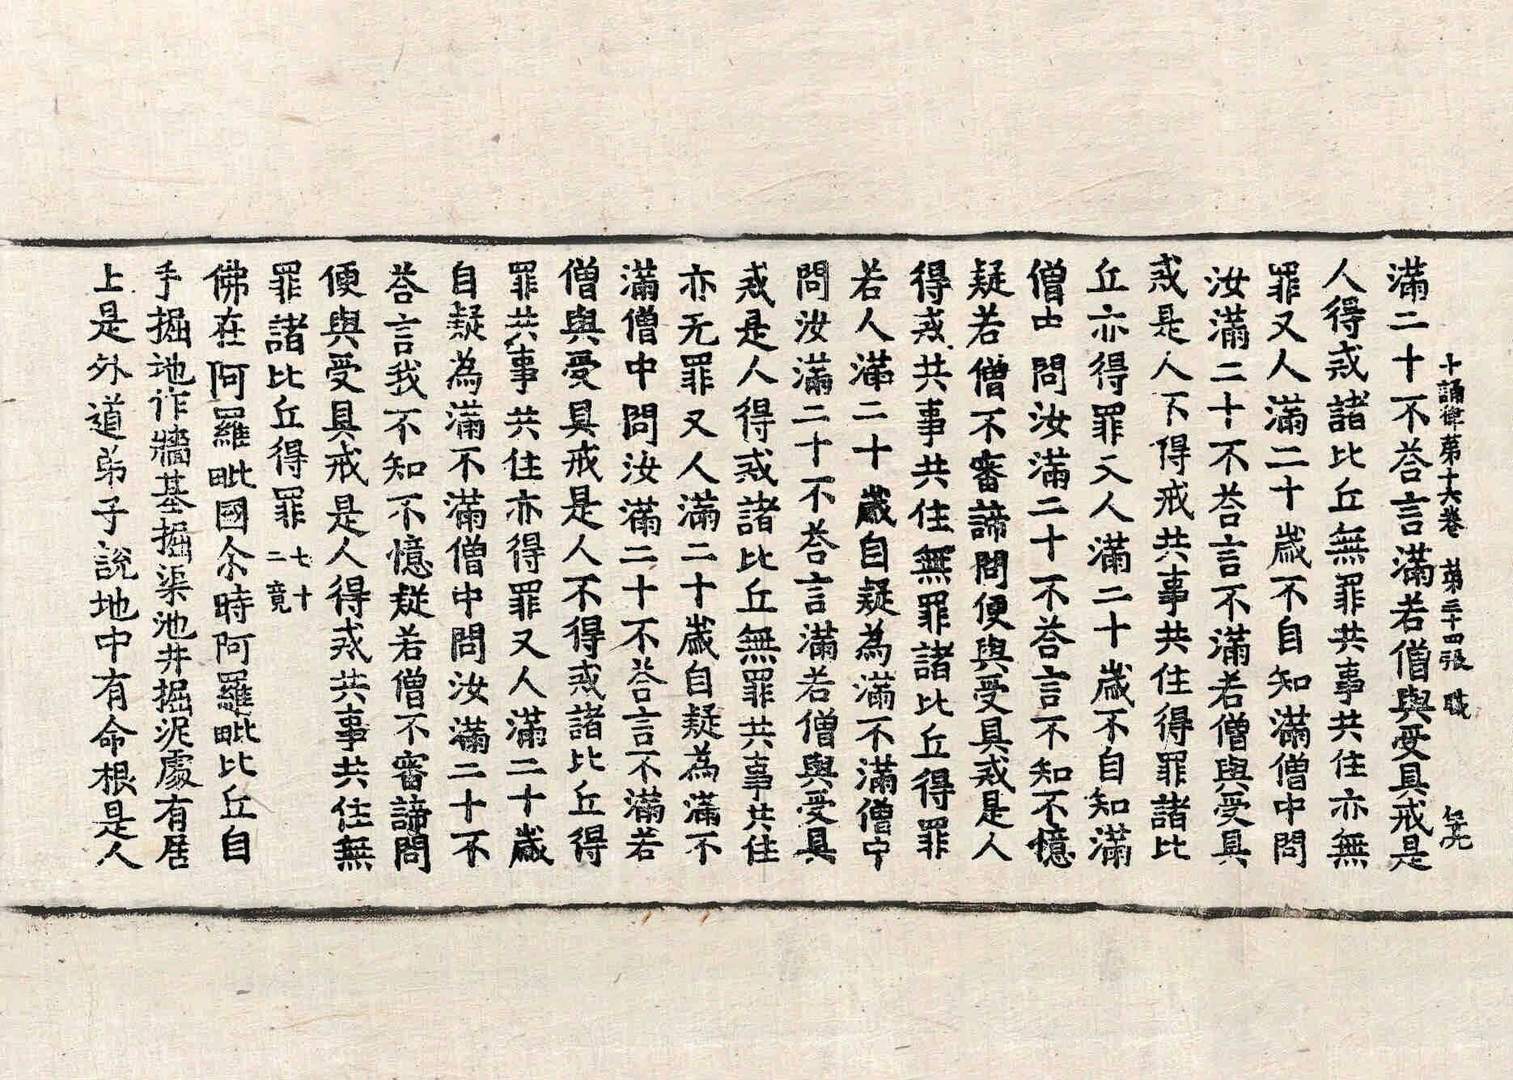 十誦律第十六卷 第三十四張 職
滿二十不荅言滿若僧與受具戒是
人得戒諸比丘無罪共事共住亦無
罪又人滿二十歲不自知滿僧中問
汝滿二十不荅言不滿若僧與受具
戒是人不得戒共事共住得罪諸比
丘亦得罪又人滿二十歲不自知滿
僧中問汝滿二十不荅言不知不憶
疑若僧不審諦問便與受具戒是人
得戒共事共住無罪諸比丘得罪
若人滿二十歲自疑為滿不滿僧中
問汝滿二十不荅言滿若僧與受具
戒是人得戒諸比丘無罪共事共住
亦无罪又人滿二十歲自疑為滿不
滿僧中問汝滿二十不荅言不滿若
僧與受具戒是人不得戒諸比丘得
罪共事共住亦得罪又人滿二十歲
自疑為滿不滿僧中問汝滿二十不
荅言我不知不憶疑若僧不審諦問
便與受具戒是人得戒共事共住無
罪諸比丘得罪 七十二竟
佛在阿羅毗國尒時阿羅毗比丘自
手掘地作牆基掘渠池井掘泥處有居
上是外道弟子說地中有命根是人